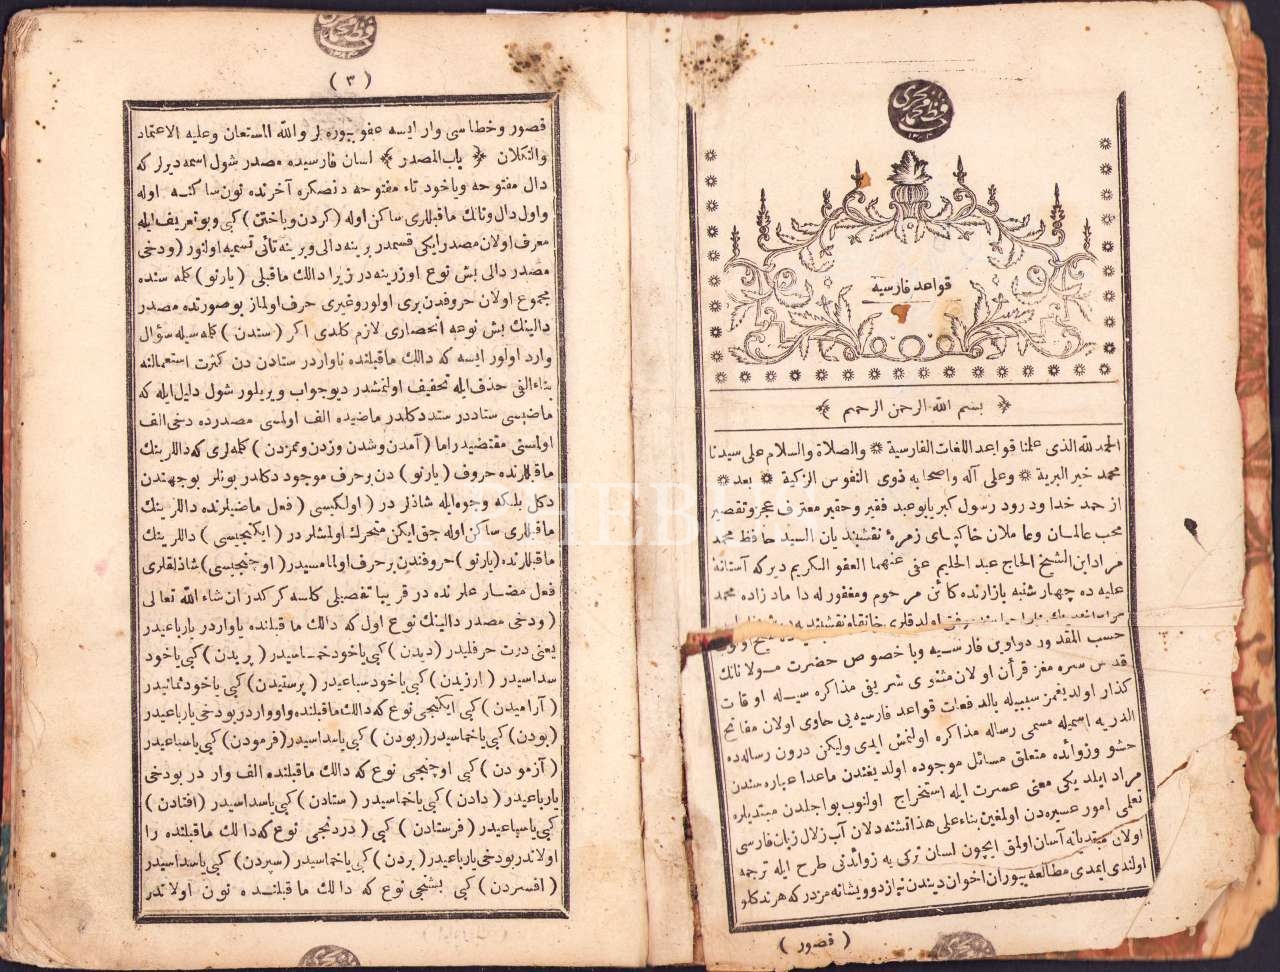 قواعد فارسیه
﴿ بسم الله الرحمن الرحیم ﴾
الحمد لله الذی علمنا قواعد اللغات الفارسیة ۞ والصلاة والسلام علی سیدنا
محمد خیر البریة ۞ وعلی آله واصحابه ذوی النفوس الزکیة ۞ بعد ۞
از حمد خدا ودرود رسول کبریا بو عبد فقیر وحقیر معترف عجز وتقصیر
محب عالمان وعاملان خاکپای زمرۀ نقشبندیان السید حافظ محمد
مراد ابن الشیخ الحاج عبد الحلیم عفی عنهما العفو الکریم دیرکه آستانۀ
علیه ده چهارشنبه بازارنده کائن مرحوم ومغفور له داماد زاده محمد
حسب المقدور دواوین فارسیه وبا خصوص حضرت مولانانك
قدس سره مغز قرآن اولان مثنوی شریفی مذاکره سیله اوقات
کذار اولدیغمز سببیله بالدفعات قواعد فارسیه یی حاوی اولان مفاتیح
الدریه اسمیله مسمی رساله مذاکره اولنمش ایدی ولیکن درون رساله ده
حشو وزوائده متعلق مسائل موجوده اولدیغندن ماعدا عباره سندن
مراد ایلدیکی معنی عسرت ایله استخراج اولنوب بو اجلدن مبتدیلره
تعلمی امور عسیره دن اولمغین بناء علی هذا تشنه دلان آب زلال زبان فارسی
اولان مبتدیانه آسان اولمق ایچون لسان ترکی یه زوائدنی طرح ایله ترجمه
اولندی ایمدی مطالعه بیوران اخوان دیندن نیاز دوریشانه مزدرکه هر ندکلو
( قصور )
( ٣ )
قصور وخطاسی وار ایسه عفو بیوره لر والله المستعان وعلیه الاعتماد
والتکلان ﴿ باب المصدر ﴾ لسان فارسیده مصدر شول اسمه دیرلر که
دال مفتوحه ویاخود تاء مفتوحه دنصکره آخرنده نون ساکنه اوله
واول دال وتانك ماقبللری ساکن اوله (کردن وباختن) کبی وبو تعریف ایله
معرف اولان مصدر ایکی قسمدر برینه دالی وبرینه تائی تسمیه اولنور (ودخی
مصدر دالی بش نوع اوزرینه در زیرا دالك ماقبلی (یارنو) کله سنده
مجموع اولان حروفدن بری اولور وغیری حرف اولماز بو صورتده مصدر
دالینك بش نوعه انحصاری لازم کلدی اکر (ستدن) کله سیله سؤال
وارد اولور ایسه که دالك ماقبلنده تا واردر ستادن دن کثرت استعمالنه
بناء الفی حذف ایله تخفیف اولنمشدر دیو جواب ویریلور شول دلیل ایله که
ماضیسی ستاددر ستد دکلدر ماضیده الف اولمسی مصدرده دخی الف
اولمسنی مقتضیدر اما (آمدن وشدن وزدن وتمزدن) کله لری که دالرینك
ماقبللرنده حروف (یارنو) دن بر حرف موجود دکلدر بونلر بو جهتدن
دکل بلکه وجوه ایله شاذلردر (اولکیسی) فعل ماضیلرنده دالرینك
ماقبللری ساکن اوله جق ایکن متحرك اولمشلردر (ایکنجیسی) دالرینك
ماقبللرنده (یارنو) حروفندن بر حرف اولمامسیدر (اوچنجیسی) شاذلقلری
فعل مضارعلرنده در قریبا تفصیلی کلسه کرکدر ان شاء الله تعالی
(ودخی مصدر دالینك نوع اول که دالك ماقبلنده یا واردر یا رباعیدر
یعنی درت حرفلیدر (دیدن) کبی یاخود خماسیدر (بریدن) کبی یاخود
سداسیدر (ارزیدن) کبی یاخود سباعیدر (پرستیدن) کبی یاخود ثمانیدر
(آرامیدن) کبی ایکنجی نوع که دالك ماقبلنده واو واردر بو دخی یا رباعیدر
(بودن) کبی یا خماسیدر (ربودن) کبی یا سداسیدر (فرمودن) کبی یا سباعیدر
(آزمودن) کبی اوچنجی نوع که دالك ماقبلنده الف واردر بو دخی
یا رباعیدر (دادن) کبی یا خماسیدر (ستادن) کبی یا سداسیدر (افتادن)
کبی یا سباعیدر (فرستادن) کبی (دردنجی نوع که دالك ماقبلنده را
اولاندر بو دخی یا رباعیدر (بردن) کبی یا خماسیدر (سپردن) کبی یا سداسیدر
(افسردن) کبی بشنجی نوع که دالك ماقبلنده نون اولاندر
PHEBUS